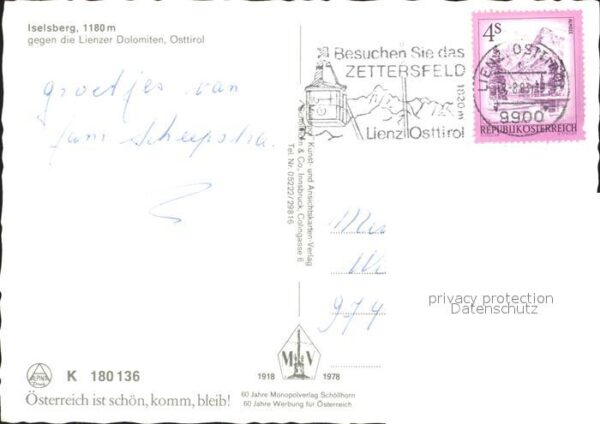 Iselsberg, 1180 m
gegen die Lienzer Dolomiten, Osttirol
groetjes van
fam Scheepstra.
Besuchen Sie das
ZETTERSFELD
1820 m
Lienz Osttirol
LIENZ, OSTTIROL
9900
4S
REPUBLIK ÖSTERREICH
Kunst- und Ansichtskarten-Verlag
& Co., Innsbruck, Colingasse 6
Tel. Nr. 05222/29816
974
privacy protection
Datenschutz
M V
1918 1978
60 Jahre Monopolverlag Schöllhorn
60 Jahre Werbung für Österreich
K 180 136
Österreich ist schön, komm, bleib!